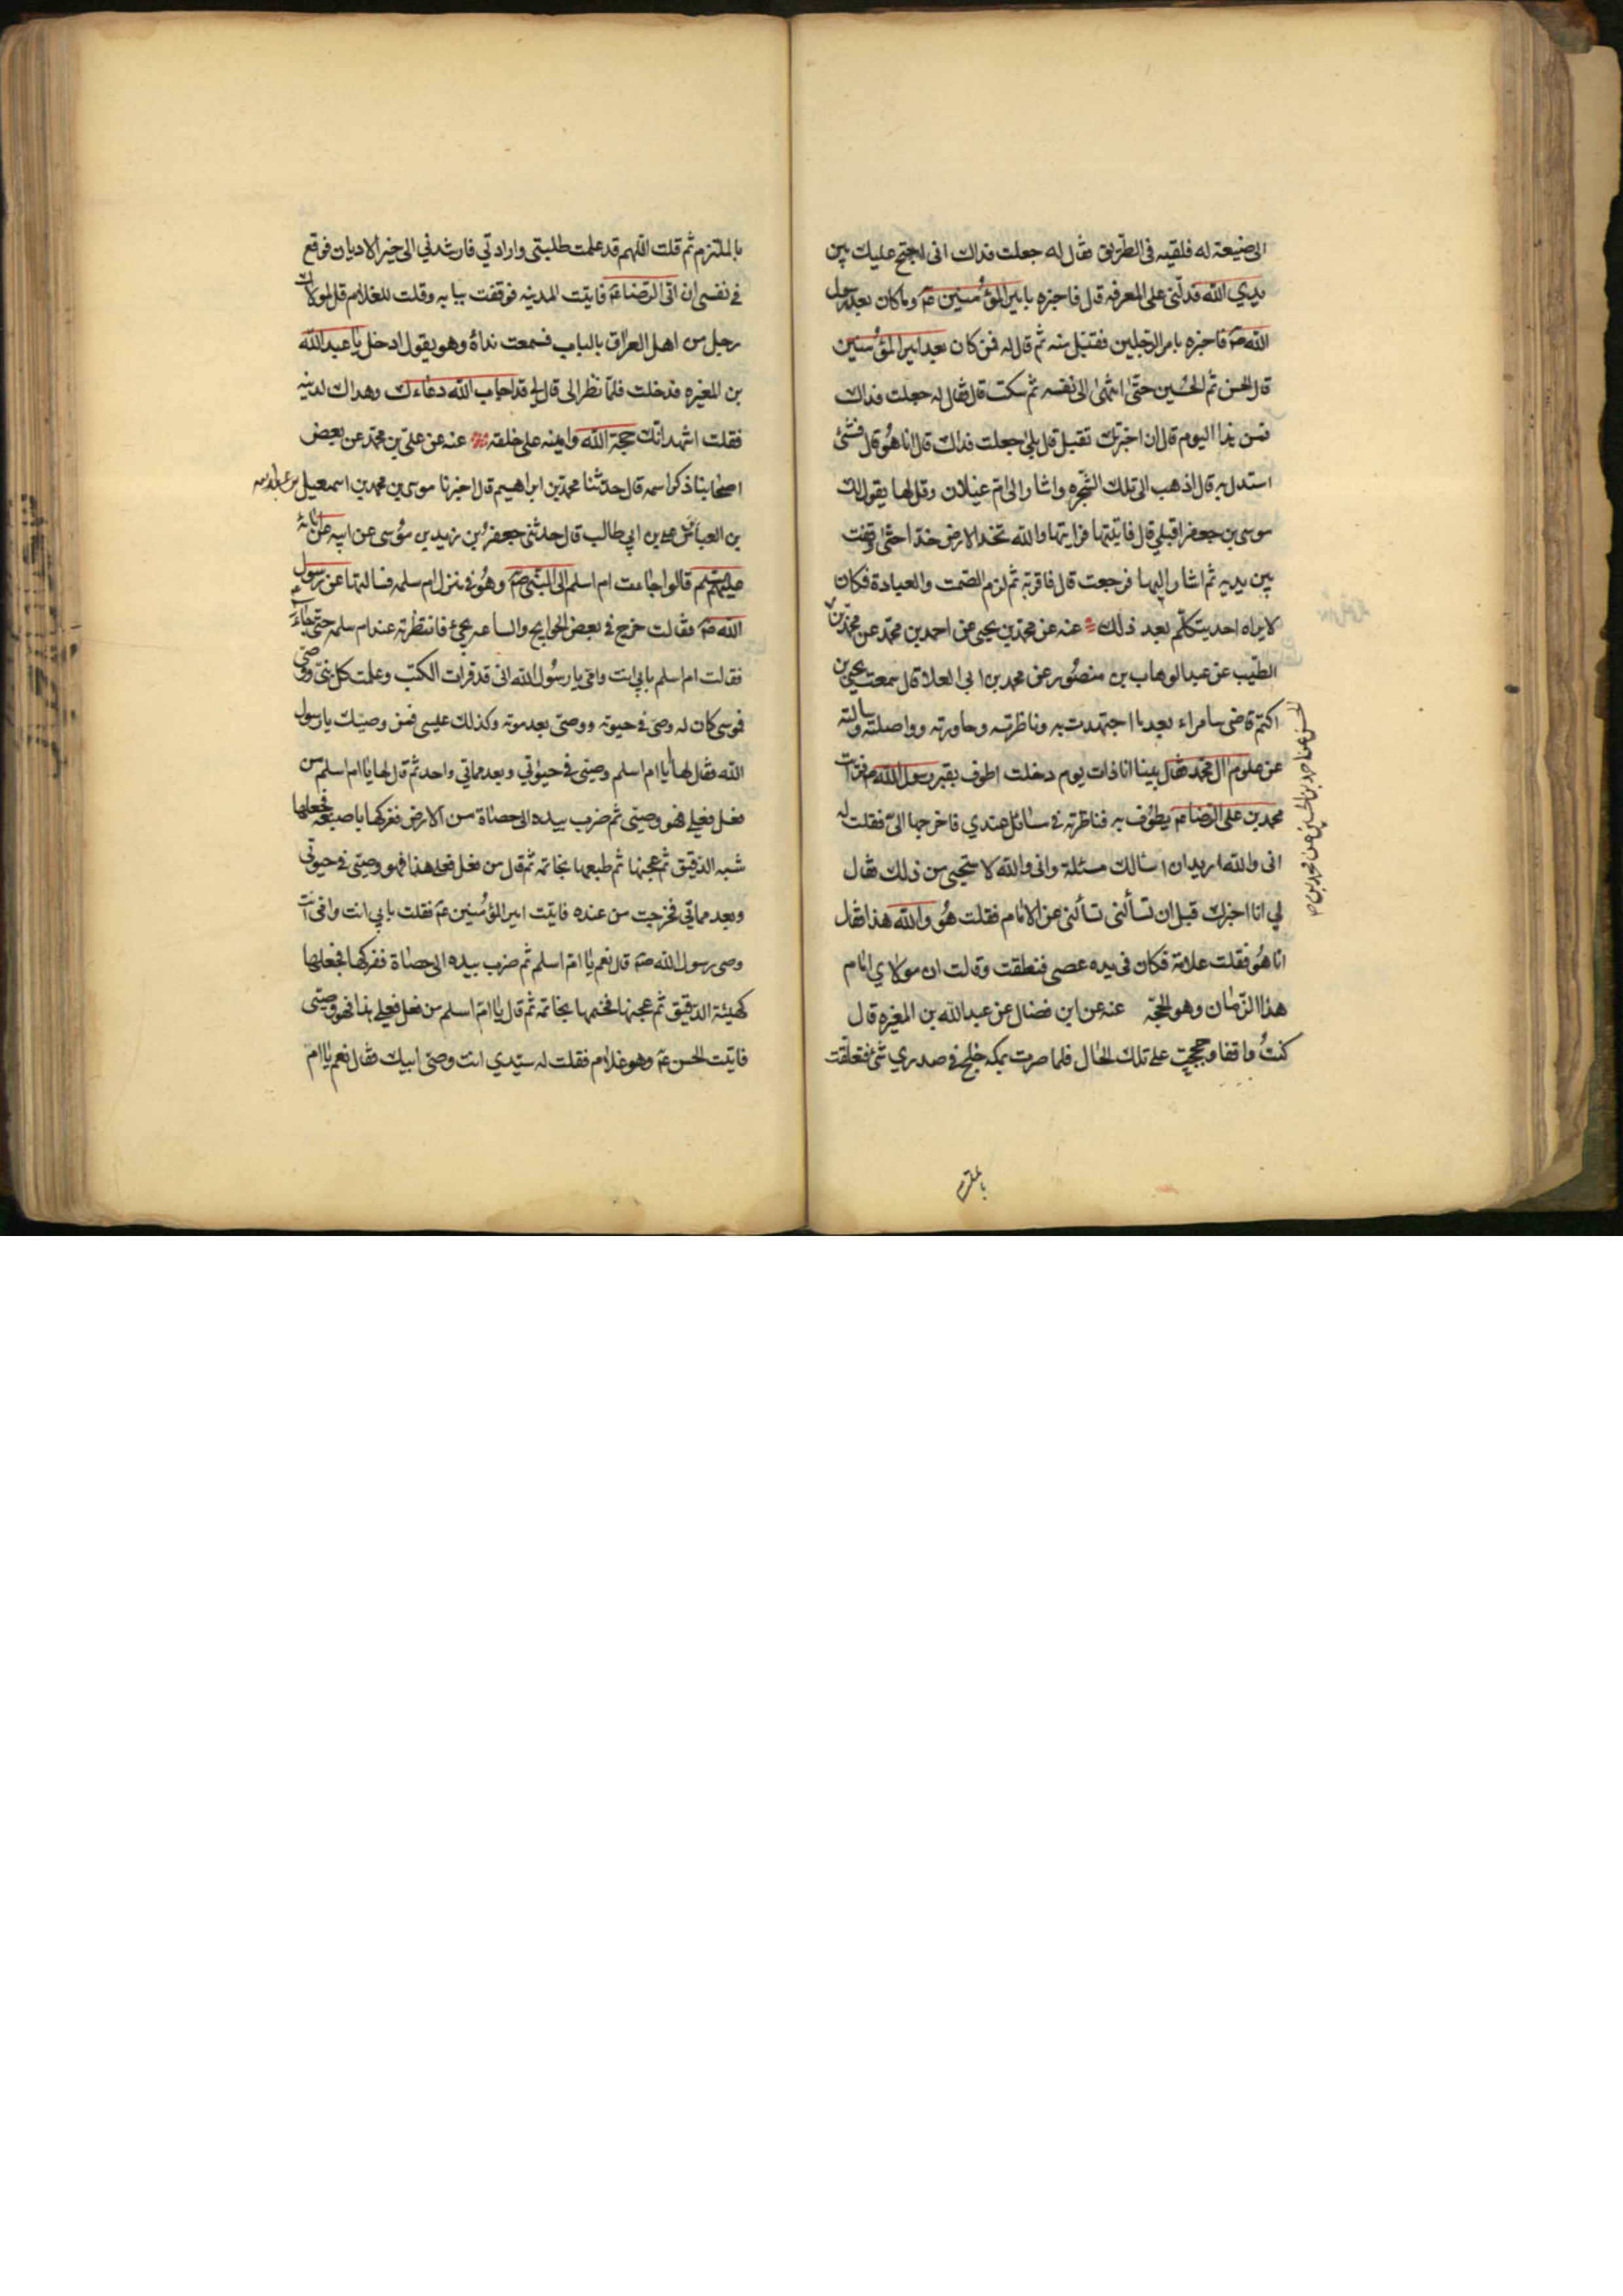 الى ضيعة له فلقيه فى الطريق فقال له جعلت فداك انى احتج عليك بين
يدي الله فدلنى على المعرفه قال فاخبره بامير المؤمنين عم وما كان بعد رسول
الله صم فاخبره بامر الرجلين فقبل منه ثم قال له فمن كان بعد امير المؤمنين
قال الحسن ثم الحسين حتى انتهى الى نفسه ثم سكت قال فقال له جعلت فداك
فمن هذا اليوم قال ان اخبرتك تقبل قال بلى جعلت فداك قال انا هو قال فشئ
استدل به قال اذهب الى تلك الشجره واشار الى ام غيلان وقل لها يقول لك
موسى بن جعفر اقبلي قال فاتيتها فرايتها والله تخد الارض خدا حتى وقفت
بين يديه ثم اشار اليها فرجعت قال فاقر به ثم لزم الصمت والعبادة فكان
لا يراه احد يتكلم بعد ذلك عنه عن محمد بن يحيى عن احمد بن محمد عن محمد بن
الطيب عن عبد الوهاب بن منصور عن محمد بن ابى العلا قال سمعت يحيى بن
اكثم قاضى سامراء بعد ما اجتهدت به وناظرته وحاورته وواصلته وسالته
عن علوم ال محمد فقال بينا انا ذات يوم دخلت اطوف بقبر رسول الله صم فرايت
محمد بن على الرضا عم يطوف به فناظرته فى مسائل عندي فاخرجها الى فقلت له
انى والله اريد ان اسالك مسئلة وانى والله لاستحيى من ذلك فقال
لي انا اخبرك قبل ان تسألنى تسألنى عن الامام فقلت هو والله هذا فقال
انا هو فقلت علامة فكان فى يده عصى فنطقت وقالت ان مولاي امام
هذا الزمان وهو الحجة عنه عن ابن فضال عن عبد الله بن المغيره قال
كنت واقفا وحججت على تلك الحال فلما صرت بمكه خلج فى صدري شئ فتعلقت
الحسن عن احمد بن الحسين عن محمد بن
بالملتزم
بالملتزم ثم قلت اللهم قد علمت طلبتى وارادتي فارشدني الى خير الاديان فوقع
فى نفسى ان اتى الرضا عم فاتيت المدينه فوقفت ببابه وقلت للغلام قل لمولاك
رجل من اهل العراق بالباب فسمعت نداؤه وهو يقول ادخل يا عبد الله
بن المغيره فدخلت فلما نظر الى قال لي قد اجاب الله دعاءك وهداك لدينه
فقلت اشهد انك حجة الله وامينه على خلقه عنه عن على بن محمد عن بعض
اصحابنا ذكر اسمه قال حدثنا محمد بن ابراهيم قال اخبرنا موسى بن محمد بن اسمعيل بن عبد الله
بن العباس بن على بن ابي طالب قال حدثنى جعفر بن زيد بن موسى عن ابيه عن ابائه
عليهم السلم قالوا جاءت ام اسلم الى النبى صم وهو فى منزل ام سلمه فسالتها عن رسول
الله صم فقالت خرج فى بعض الحوايج والساعه يجئ فانتظرته عند ام سلمه حتى جاء
فقالت ام اسلم بابي انت وامى يا رسول الله انى قد قرات الكتب وعلمت كل نبى ووصى
فموسى كان له وصى فى حيوته ووصى بعد موته وكذلك عليسى فمن وصيك يا رسول
الله فقال لها يا ام اسلم وصيى فى حيوتي وبعد مماتي واحد ثم قال لها يا ام اسلم من
فعل فعلي فهو وصيى ثم ضرب بيده الى حصاة من الارض ففركها باصبعه فجعلها
شبه الدقيق ثم عجنها ثم طبعها بخاتمه ثم قال من فعل فعلى هذا فهو وصيى فى حيوتي
وبعد مماتي فخرجت من عنده فاتيت امير المؤمنين عم فقلت بابي انت وامى انت
وصى رسول الله صم قال نعم يا ام اسلم ثم ضرب بيده الى حصاة ففركها فجعلها
كهيئة الدقيق ثم عجنها فختمها بخاتمه ثم قال يا ام اسلم من فعل فعلي هذا فهو وصيى
فاتيت الحسن عم وهو غلام فقلت له سيدي انت وصى ابيك فقال نعم يا ام